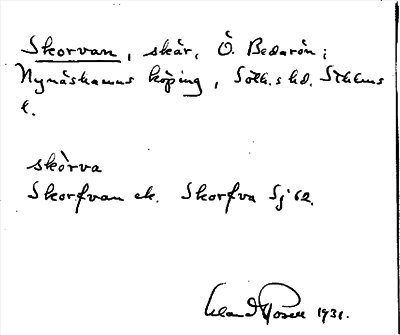 Skorvan, skär, Ö. Bedarön;
Nynäshamns köping, Soth. s. hd. Sthlms
l.
skòrva
Skorfvan ek. Skorfva Sj 62.
1931.